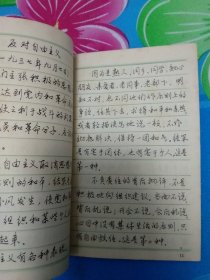 反对自由主义
一九三七年九月
们主张积极的思
达到党内和革命
使之利于战斗的
员和革命分子,
自由主义取消思想
则的和平,结果
作风发生,使党和
组织和某些个人
起来。
义有各种表现
因为是熟人、同乡、同学、知心
朋友、亲爱者、老同事、老部下,明
知不对,也不同他们作原则上的
争论,任其下去,求得和平和亲热。
或者轻描淡写地说一顿,不作
彻底解决,保持一团和气。结果
是有害于团体,也有害于个人。这是
第一种。
不负责任的背后批评,不是
积极地向组织建议。当面不说,
背后乱说;开会不说,会后乱说。
心目中没有集体生活的原则,只
有自由放任。这是第二种。